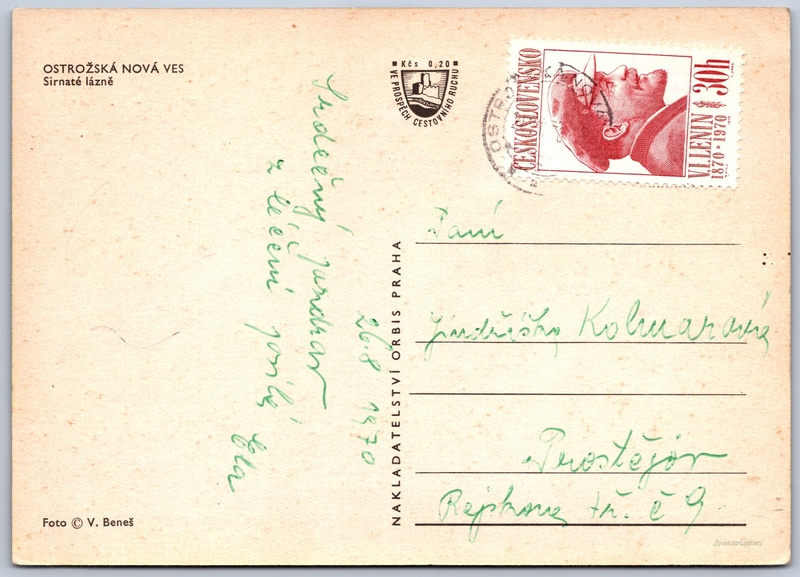 OSTROŽSKÁ NOVÁ VES
Sirnaté lázně
Kčs 0,20
VE PROSPĚCH CESTOVNÍHO RUCHU
ČESKOSLOVENSKO
V.I.LENIN
1870 • 1970
30h
Srdečný pozdrav
z léčení posílá
Ela
26.8 1970
NAKLADATELSTVÍ ORBIS PRAHA
Paní
Jindřiška Kolmarová
Prostějov
Rejskova tř. č 9
Foto © V. Beneš